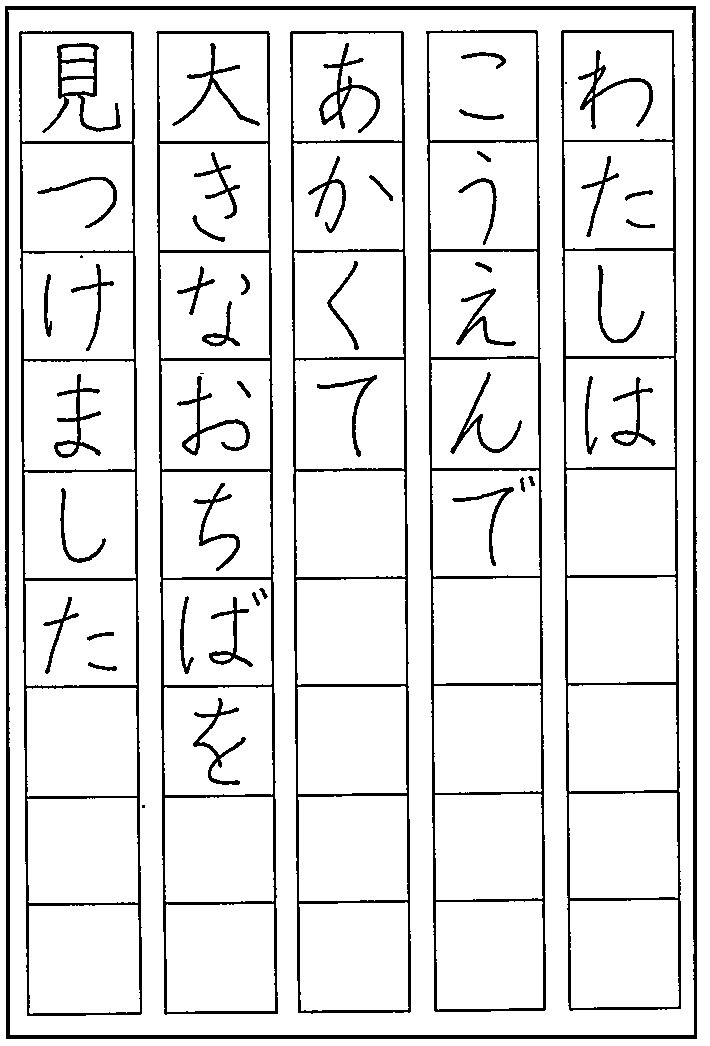 わたしは
こうえんで
あかくて
大きなおちばを
見つけました